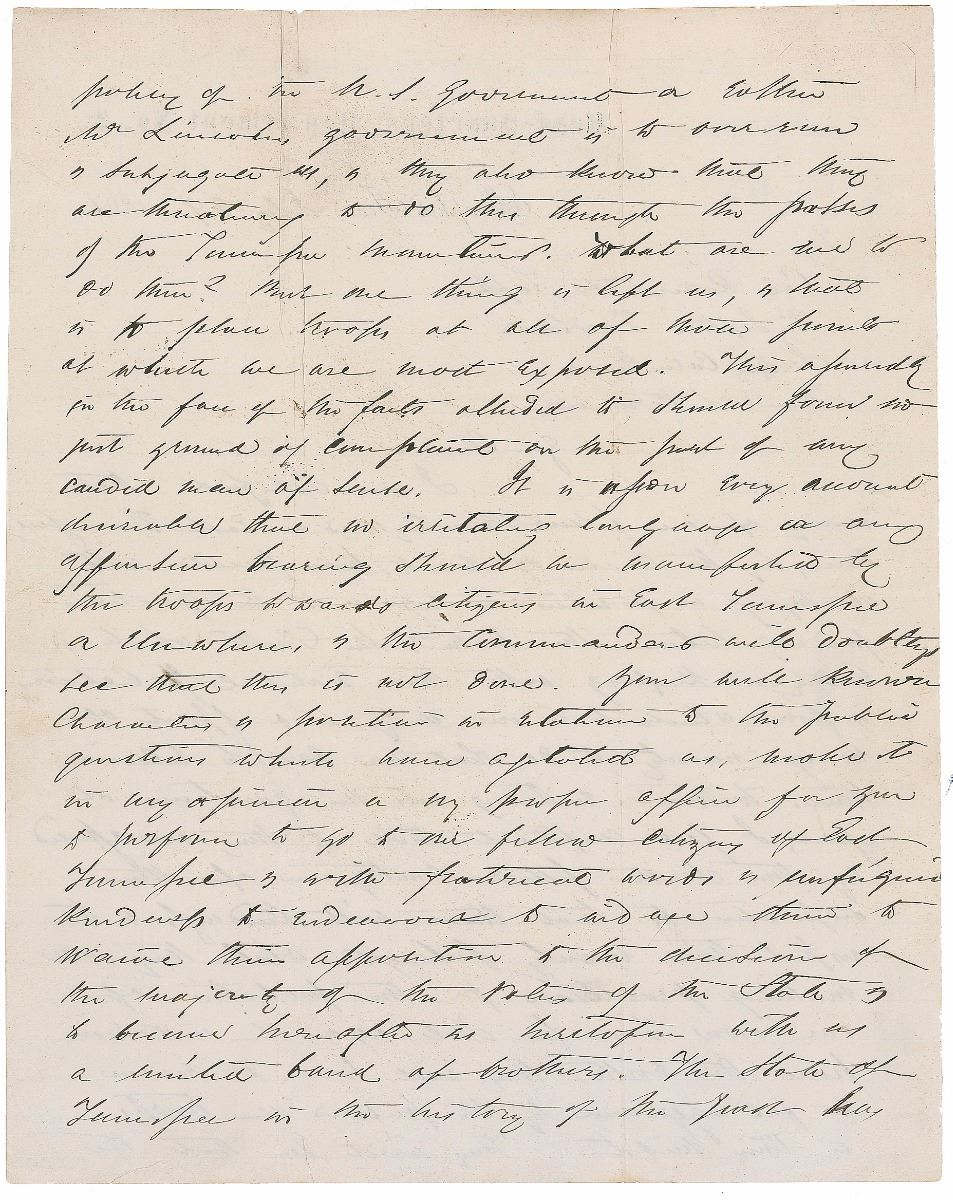 policy of the U. S. Government or rather
Mr Lincolns government is to overrun
& subjugate us, & they also know that they
are threatening to do this through the passes
of the Tennessee mountains. What are we to
do then? But one thing is left us, & that
is to place troops at all of those points
at which we are most exposed. This assuredly
in the face of the facts alluded to should found no
just ground of complaint on the part of any
candid man of sense. It is upon every account
desirable that no irritating language or any
offensive bearing should be manifested by
the troops towards citizens in East Tennessee
or elsewhere, & the Commanders will doubtless
see that this is not done. Your well known
Character & position in relation to the public
questions which have agitated us, make it
in my opinion a very proper office for you
to perform to go to our fellow citizens of East
Tennessee & with fraternal words & unfeigned
kindness to endeavour to induce them to
waive their opposition to the decision of
the majority of the voters of the State &
to become hereafter as heretofore with us
a united band of brothers. The State of
Tennessee in the history of the past has